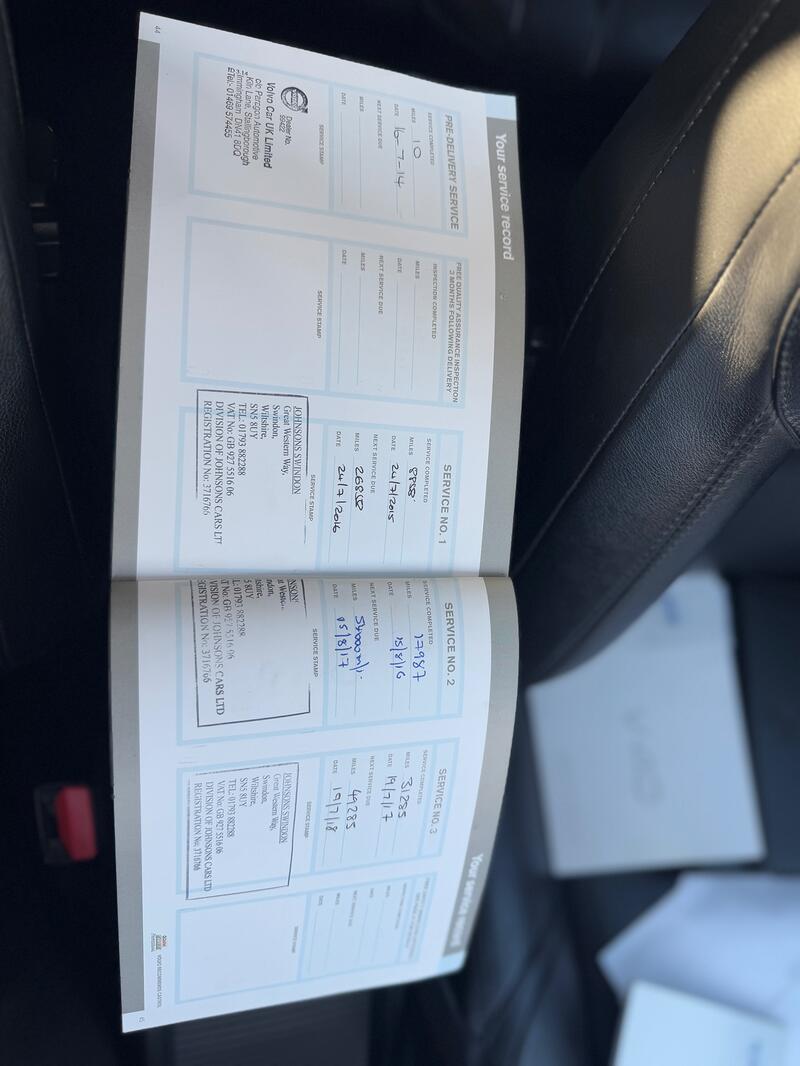 Your service record
PRE-DELIVERY SERVICE
SERVICE COMPLETED
MILES 10
DATE 16-7-14
NEXT SERVICE DUE
MILES
DATE
SERVICE STAMP
Dealer No.
Volvo Car UK Limited
c/o Paragon Automotive
Kiln Lane, Stallingborough
DN41 8DQ
Tel:- 01469 574455
44
FREE QUALITY ASSURANCE INSPECTION
3 MONTHS FOLLOWING DELIVERY
INSPECTION COMPLETED
MILES
DATE
NEXT SERVICE DUE
MILES
DATE
SERVICE STAMP
SERVICE NO. 1
SERVICE COMPLETED
MILES 8858
DATE 24/7/2015
NEXT SERVICE DUE
MILES 26858
DATE 24/7/2016
SERVICE STAMP
JOHNSONS SWINDON
Great Western Way,
Swindon,
Wiltshire,
SN5 8UY
TEL: 01793 882288
VAT No: GB 927 5516 06
DIVISION OF JOHNSONS CARS LT
REGISTRATION No: 3716766
SERVICE NO. 2
SERVICE COMPLETED
MILES 17987
DATE 15/8/16
NEXT SERVICE DUE
MILES
DATE 15/8/17
SERVICE STAMP
NSON
at Weste
ndon,
shire,
5 8UY
L: 01793 882288
T No: GB 927 5516 06
VISION OF JOHNSONS CARS LTD
GISTRATION No: 3716766
SERVICE NO. 3
SERVICE COMPLETED
MILES 31285
DATE 19/7/17
NEXT SERVICE DUE
MILES 49285
DATE 19/7/18
SERVICE STAMP
JOHNSONS SWINDON
Great Western Way,
Swindon,
Wiltshire,
SN5 8UY
TEL: 01793 882288
VAT No: GB 927 5516 06
DIVISION OF JOHNSONS CARS LTD
REGISTRATION No: 3716766
Your service record
NEXT SERVICE DUE
MILES
DATE
SERVICE STAMP
VOLVO RECOMMENDS CASTROL
45